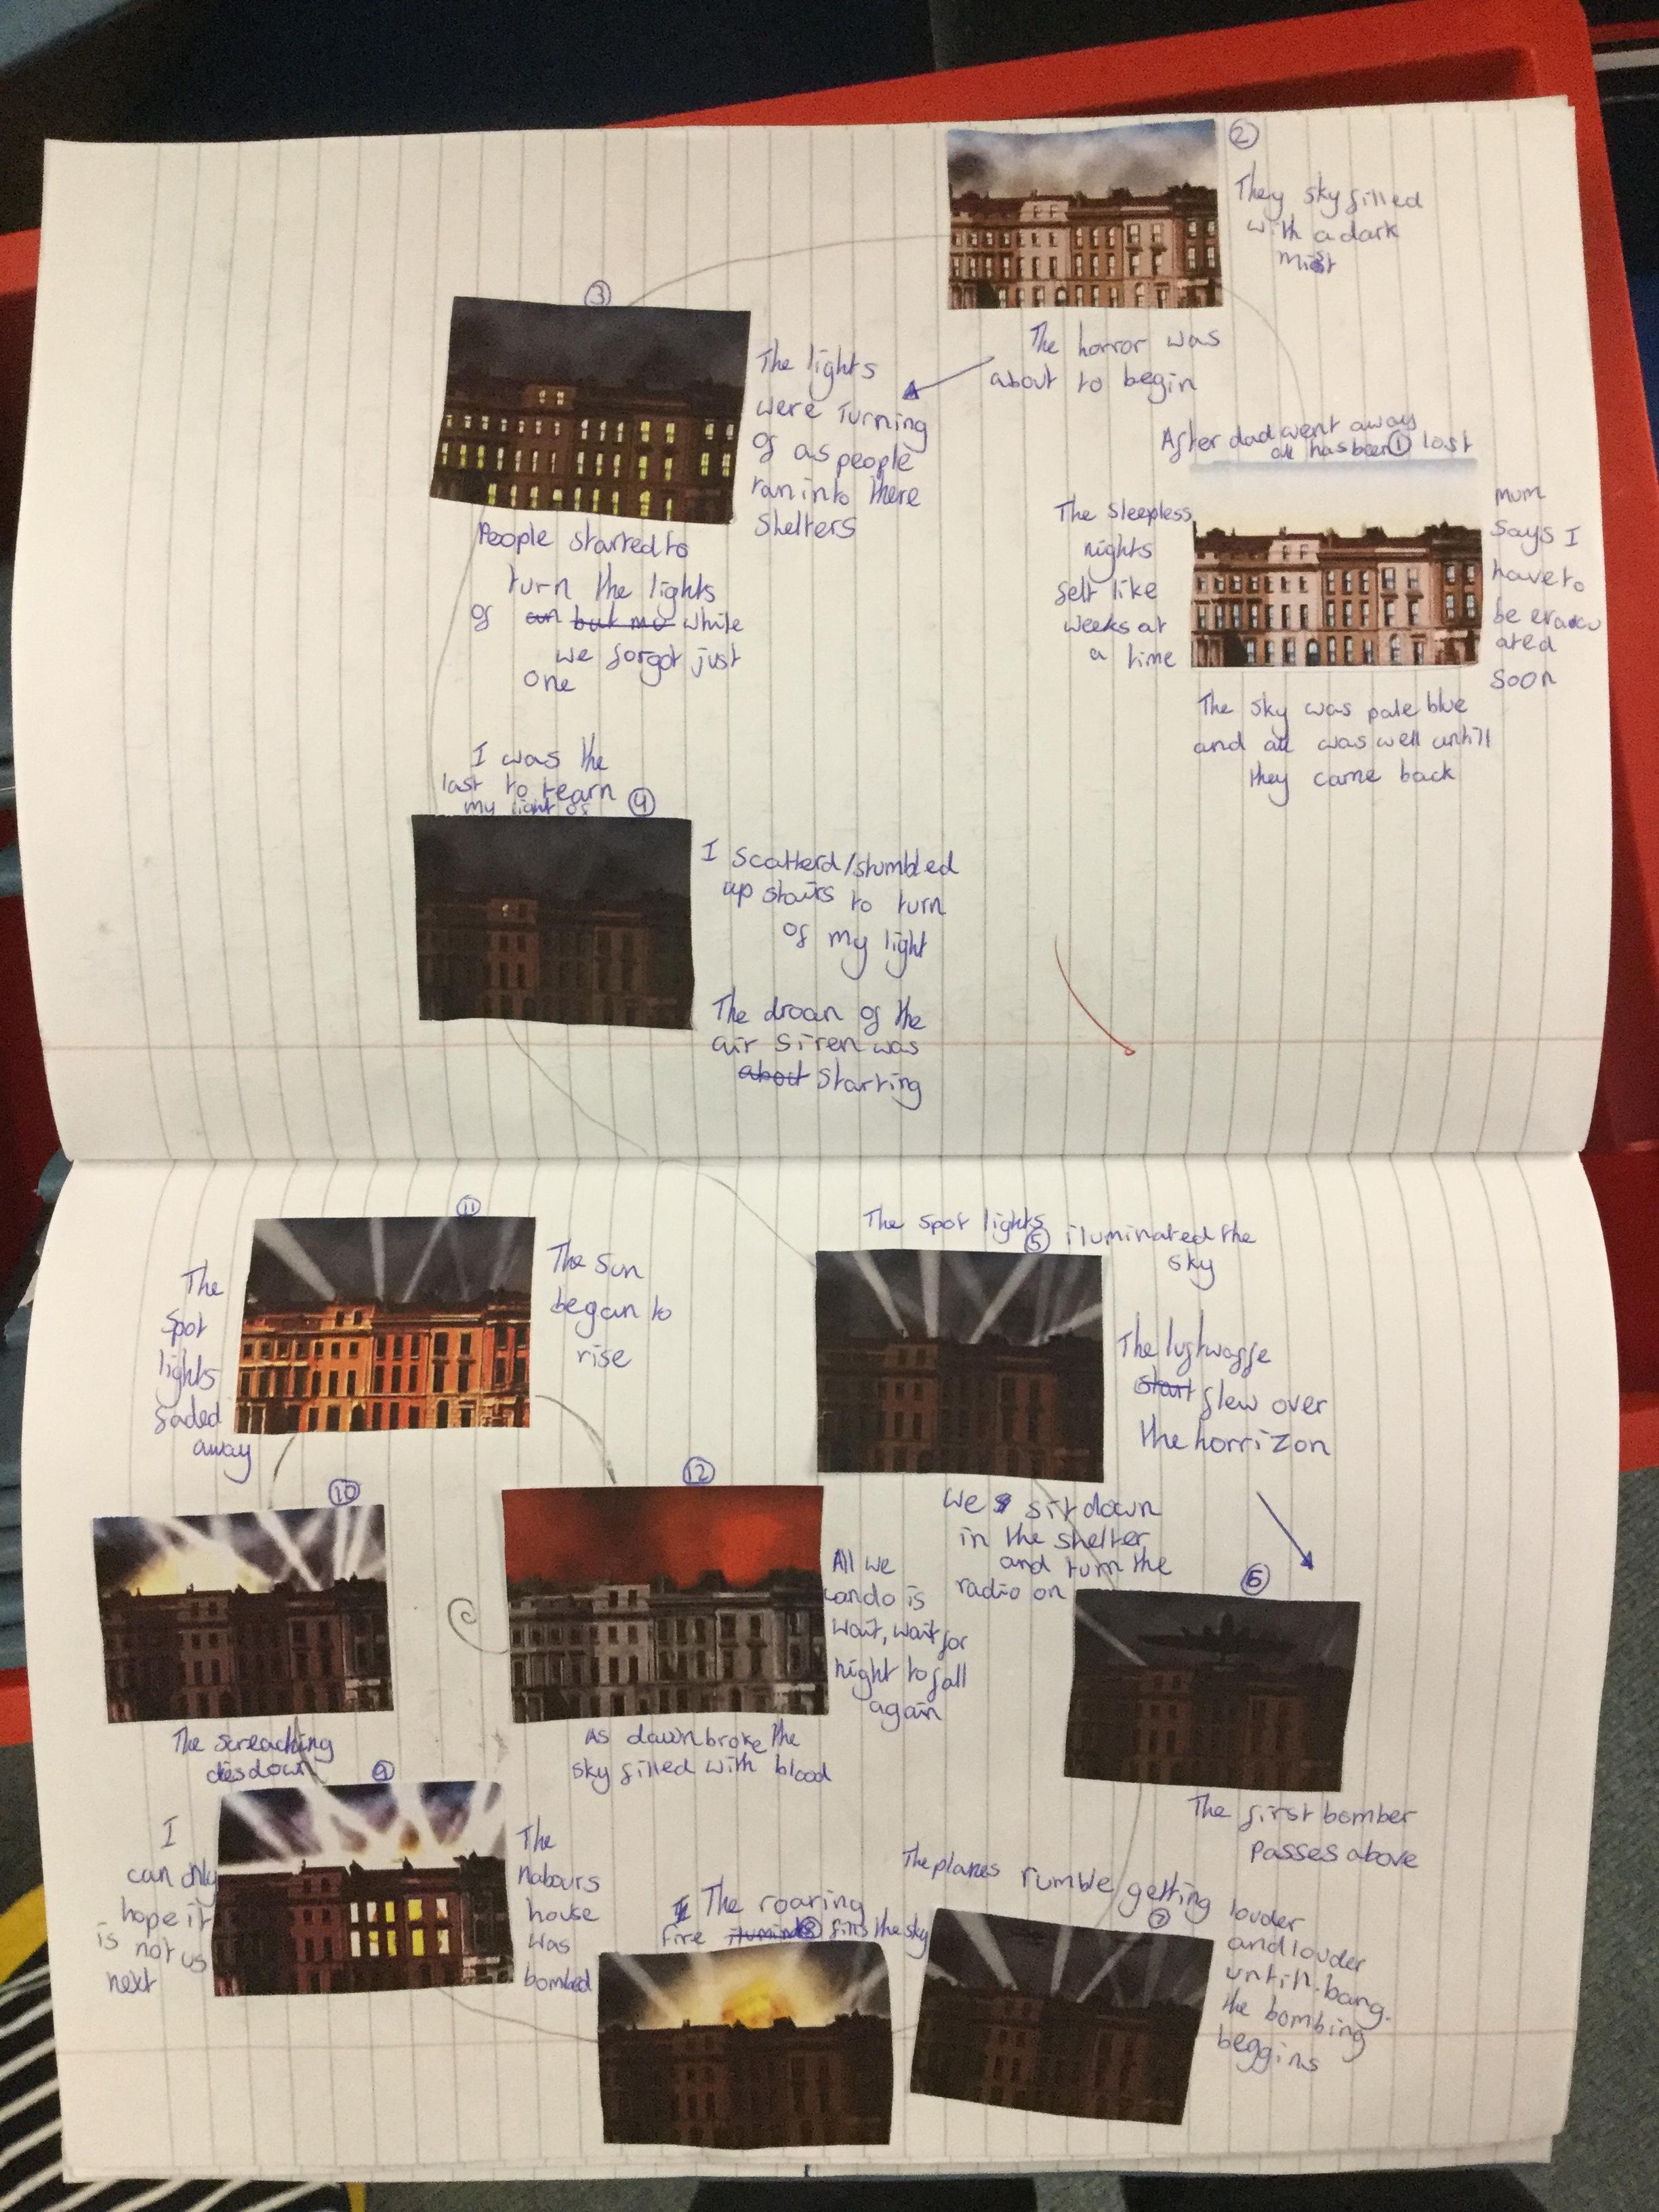 ①
After dad went away
all has been lost
The sleepless
nights
felt like
weeks at
a time
mum
says I
have to
be evacu
ated
soon
The sky was pale blue
and all was well untill
they came back
②
They sky filled
with a dark
mist
The horror was
about to begin
③
The lights
were Turning
of as people
ran into there
shelters
People started to
turn the lights
of an but mo while
we forgot just
one
④
I was the
last to tearn
my light of
I scatterd/stumbled
up stairs to turn
of my light
The droan of the
air siren was
about starting
⑤
The spot lights iluminated the
sky
The luftwaffe
start flew over
the horrizon
We sit down
in the shelter
and turn the
radio on
⑥
The first bomber
passes above
⑦
The planes rumble getting louder
and louder
untill. bang.
the bombing
beggins
⑧
The roaring
fire fills the sky
⑨
The
nabours
house
was
bombed
I
can only
hope it
is not us
next
⑩
The screaching
dies down
⑪
The
spot
lights
faded
away
The sun
began to
rise
⑫
All we
can do is
wait, wait for
night to fall
again
As dawn broke the
sky filled with blood